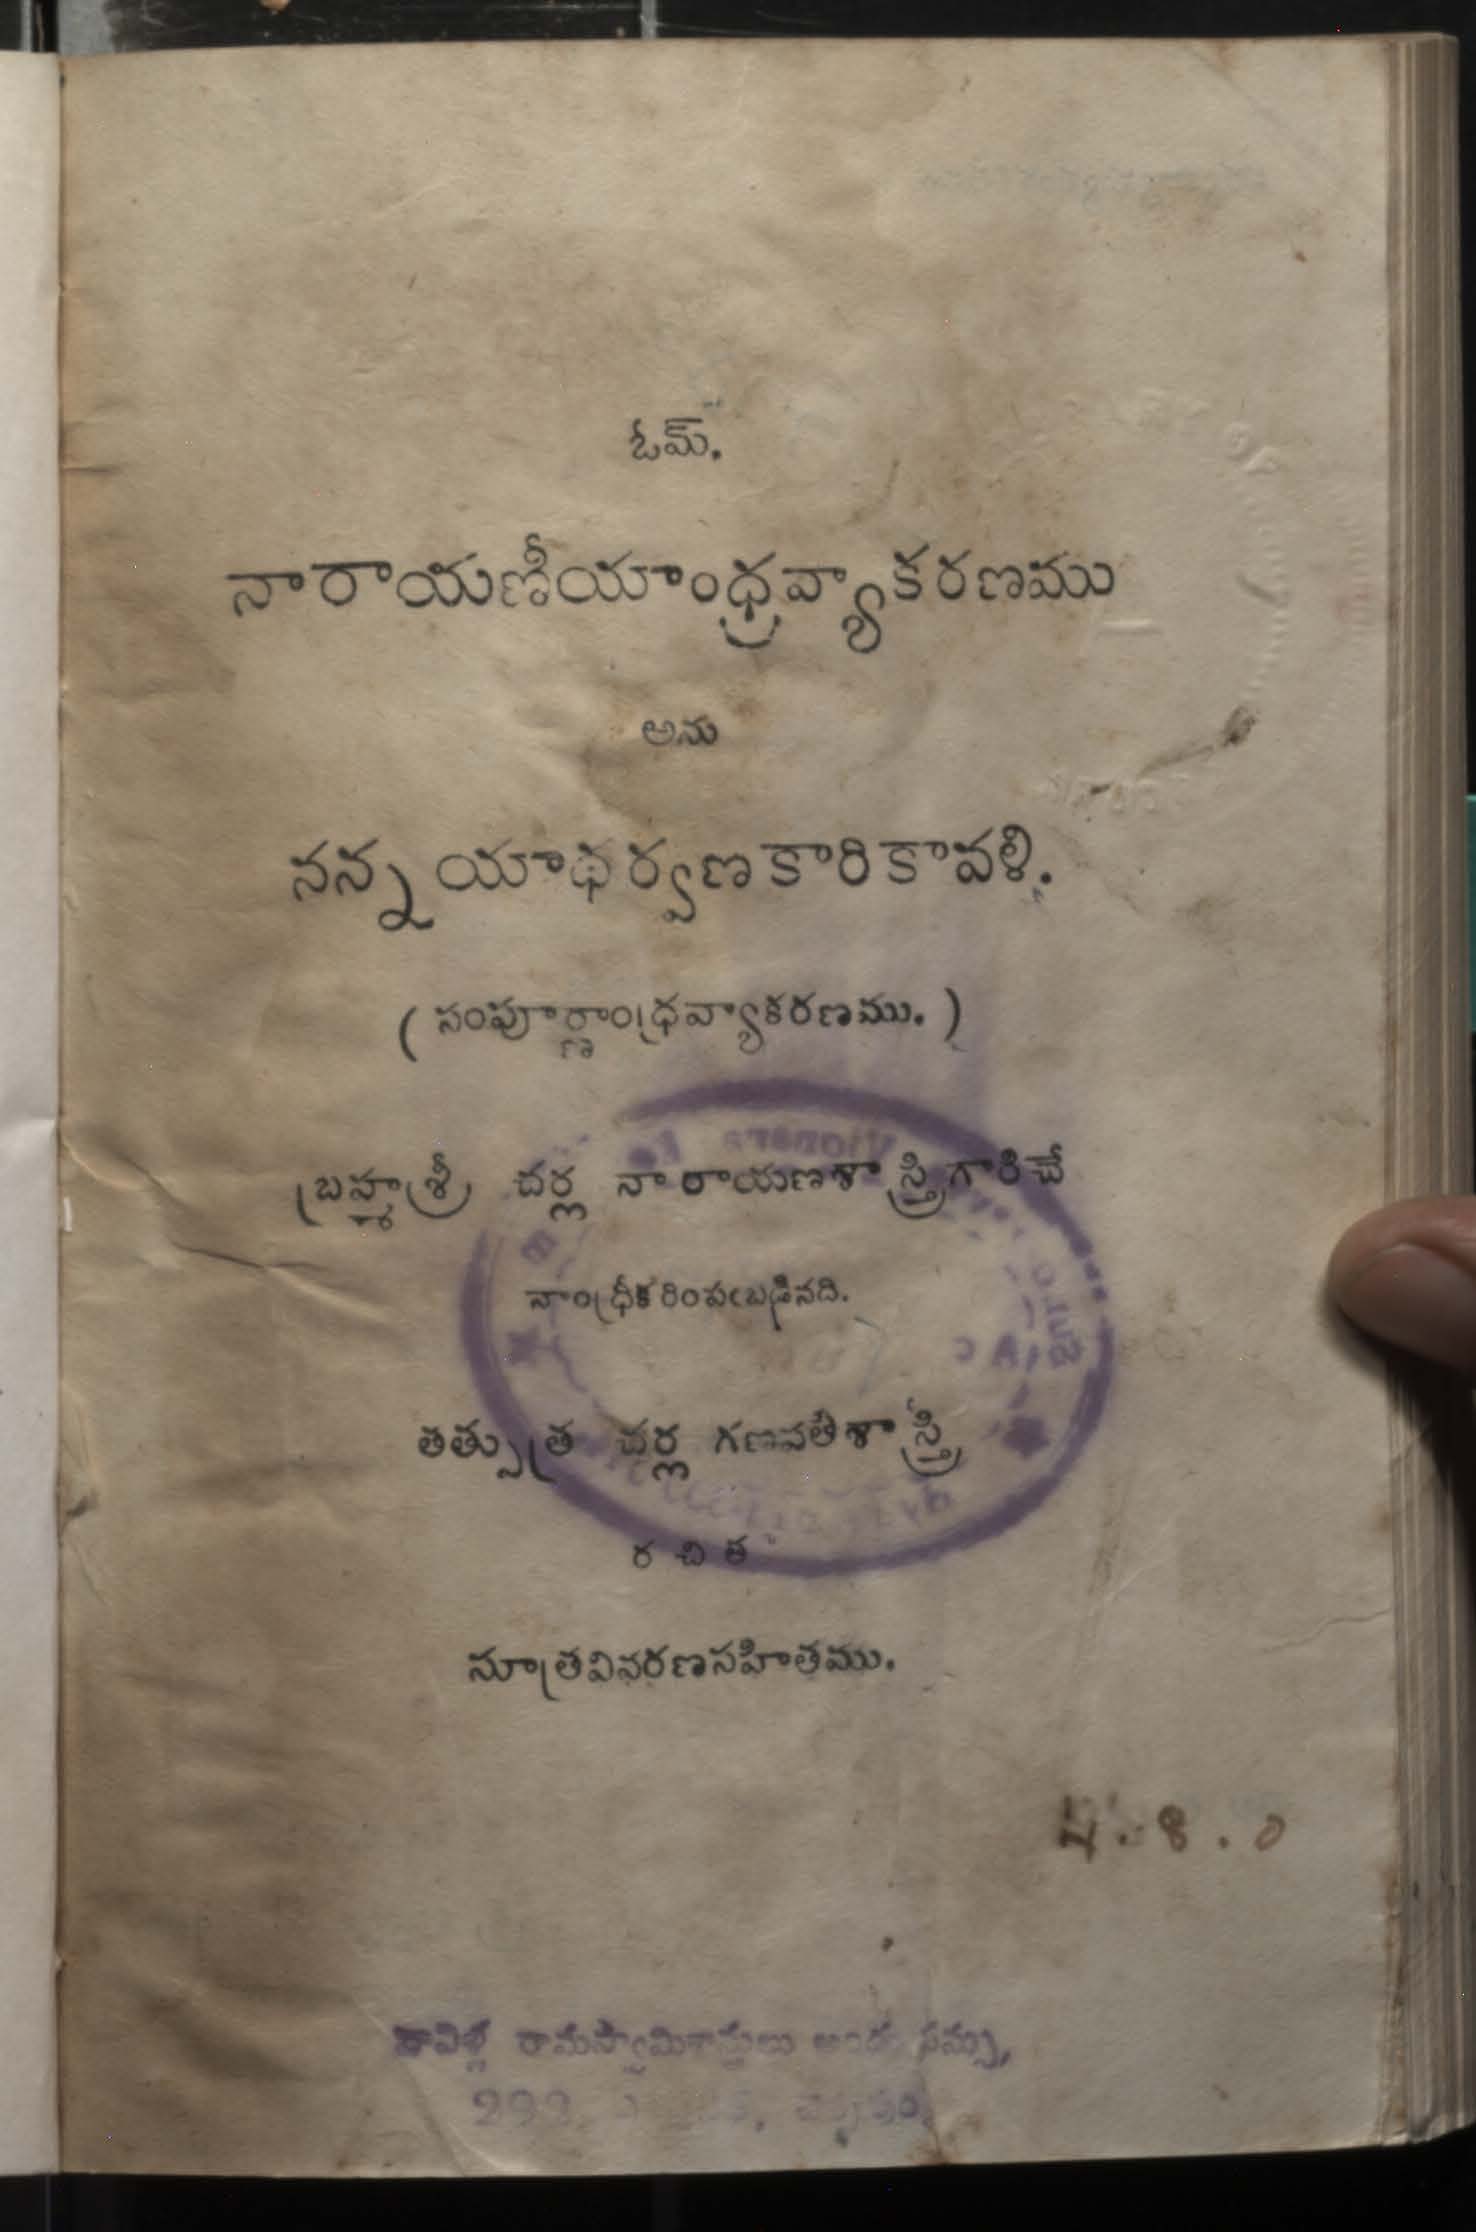 ఓమ్.
నారాయణీయాంధ్రవ్యాకరణము
అను
నన్నయాథర్వణకారికావళి.
( సంపూర్ణాంధ్రవ్యాకరణము. )
బ్రహ్మశ్రీ చర్ల నారాయణశాస్త్రిగారిచే
నాంధ్రీకరింపఁబడినది.
తత్పుత్ర చర్ల గణపతిశాస్త్రి
రచిత
సూత్రవివరణసహితము.
4.8.0
రామస్వామిశాస్త్రులు అండు సన్సు,